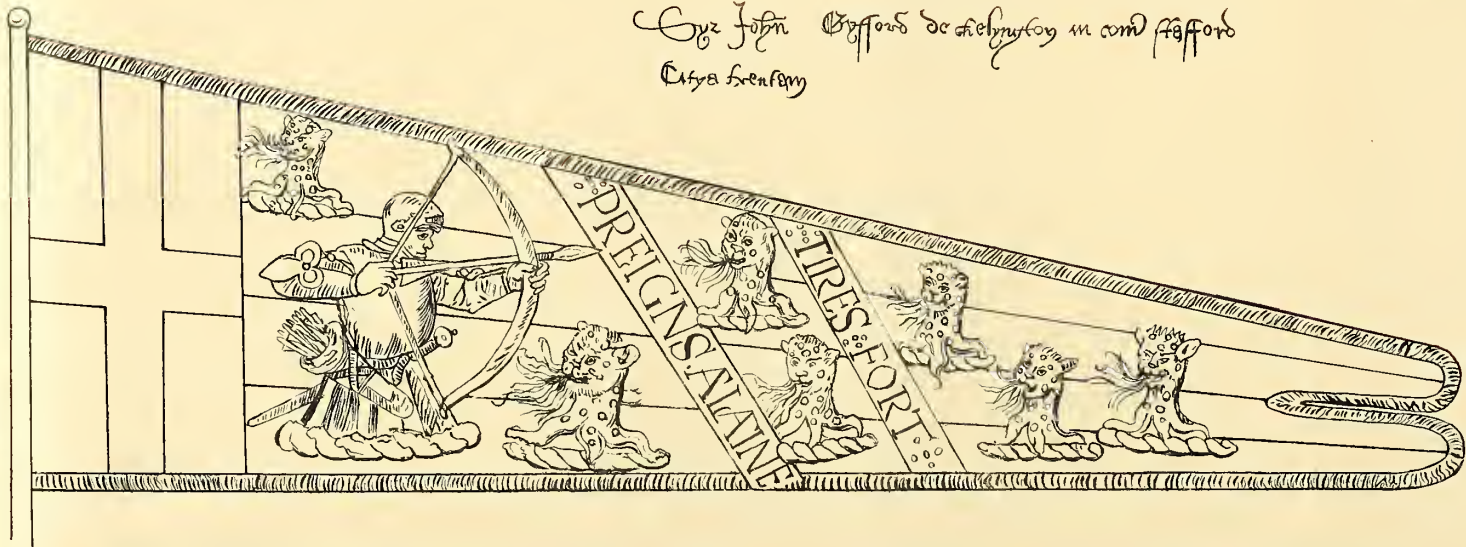 Syr John Gyfford de Chelyngton in com Stafford
PREIGNS.ALAINE
TIRES:FORT